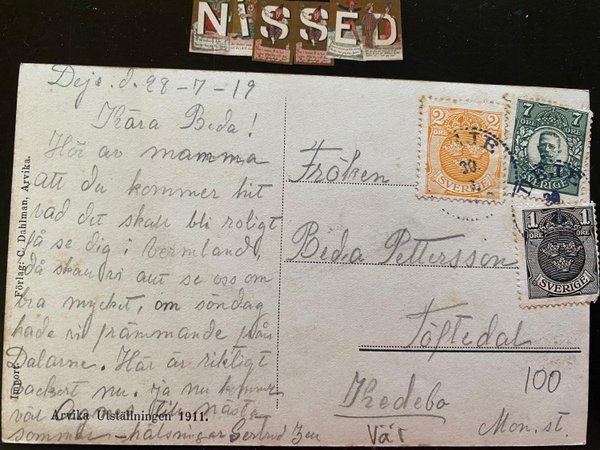 NISSED
Deje. d. 28-7-19
Kära Beda!
Hör av mamma
att du kommer hit
vad det skall bli roligt
få se dig i Vermland,
då skall vi se oss om
bra mycket, om söndag
hade vi främmande från
Dalarne. Här är riktigt
vackert nu. ja nu
nästa
sommar – hälsningar Gertrud
Förlag: C. Dahlman, Arvika.
Import.
Arvika Utställningen 1911.
2 2
ÖRE ÖRE
SVERIGE
7 7
ÖRE ÖRE
SVERIGE
1 1
ÖRE ÖRE
SVERIGE
30
Fröken
Beda Pettersson
Töftedal
Hedebo
100
Mon. st.